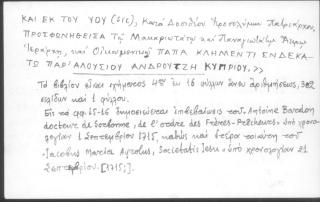 ΚΑΙ ΕΚ ΤΟΥ ΥΟΥ (sic), Κατά Δοσιθέου Ἱεροσολύμων Πατριάρχου,
ΠΡΟΣΦΩΝΗΘΕΙΣΑ Τῷ Μακαριωτάτῳ καί Παναγιωτάτῳ Ἄκρῳ
Ἱεράρχῃ, καί Οἰκουμενικῷ ΠΑΠΑ ΚΛΗΜΕΝΤΙ ΕΝΔΕΚΑ-
ΤΩ ΠΑΡ' ΑΛΟΥΣΙΟΥ ΑΝΔΡΟΥΤΖΗ ΚΥΠΡΙΟΥ.>>
Τό βιβλίον εἶναι σχήματος 4ον ἐκ 16 φύλλων ἄνευ ἀριθμήσεως, 302
σελίδων καί 1 φύλλου.
Εἰς τά φφ. 15-16 δημοσιεύεται ἐπιβεβαίωσις τοῦ Antoine
docteur de Sorbonne, de l'ordre des Frères-Prêcheurs, ὑπό χρονο-
λογίαν 1 Σεπτεμβρίου 1715 καθώς καί ἑτέρα τοῦ
Iacobus Maria Societatis Iesu ὑπό χρονολογίαν 21
Σεπτεμβρίου [1715;].